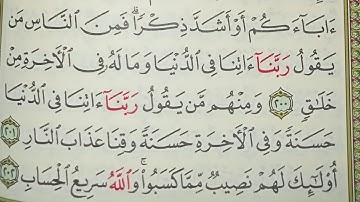 ءَابَآءَكُمْ أَوْ أَشَدَّ ذِكْرًاۗ فَمِنَ ٱلنَّاسِ مَن
يَقُولُ رَبَّنَآ ءَاتِنَا فِى ٱلدُّنْيَا وَمَا لَهُۥ فِى ٱلْـَٔاخِرَةِ مِنْ
خَلَٰقٍ ٢٠٠ وَمِنْهُم مَّن يَقُولُ رَبَّنَآ ءَاتِنَا فِى ٱلدُّنْيَا
حَسَنَةً وَفِى ٱلْـَٔاخِرَةِ حَسَنَةً وَقِنَا عَذَابَ ٱلنَّارِ ٢٠١
أُو۟لَٰٓئِكَ لَهُمْ نَصِيبٌ مِّمَّا كَسَبُوا۟ۚ وَٱللَّهُ سَرِيعُ ٱلْحِسَابِ ٢٠٢